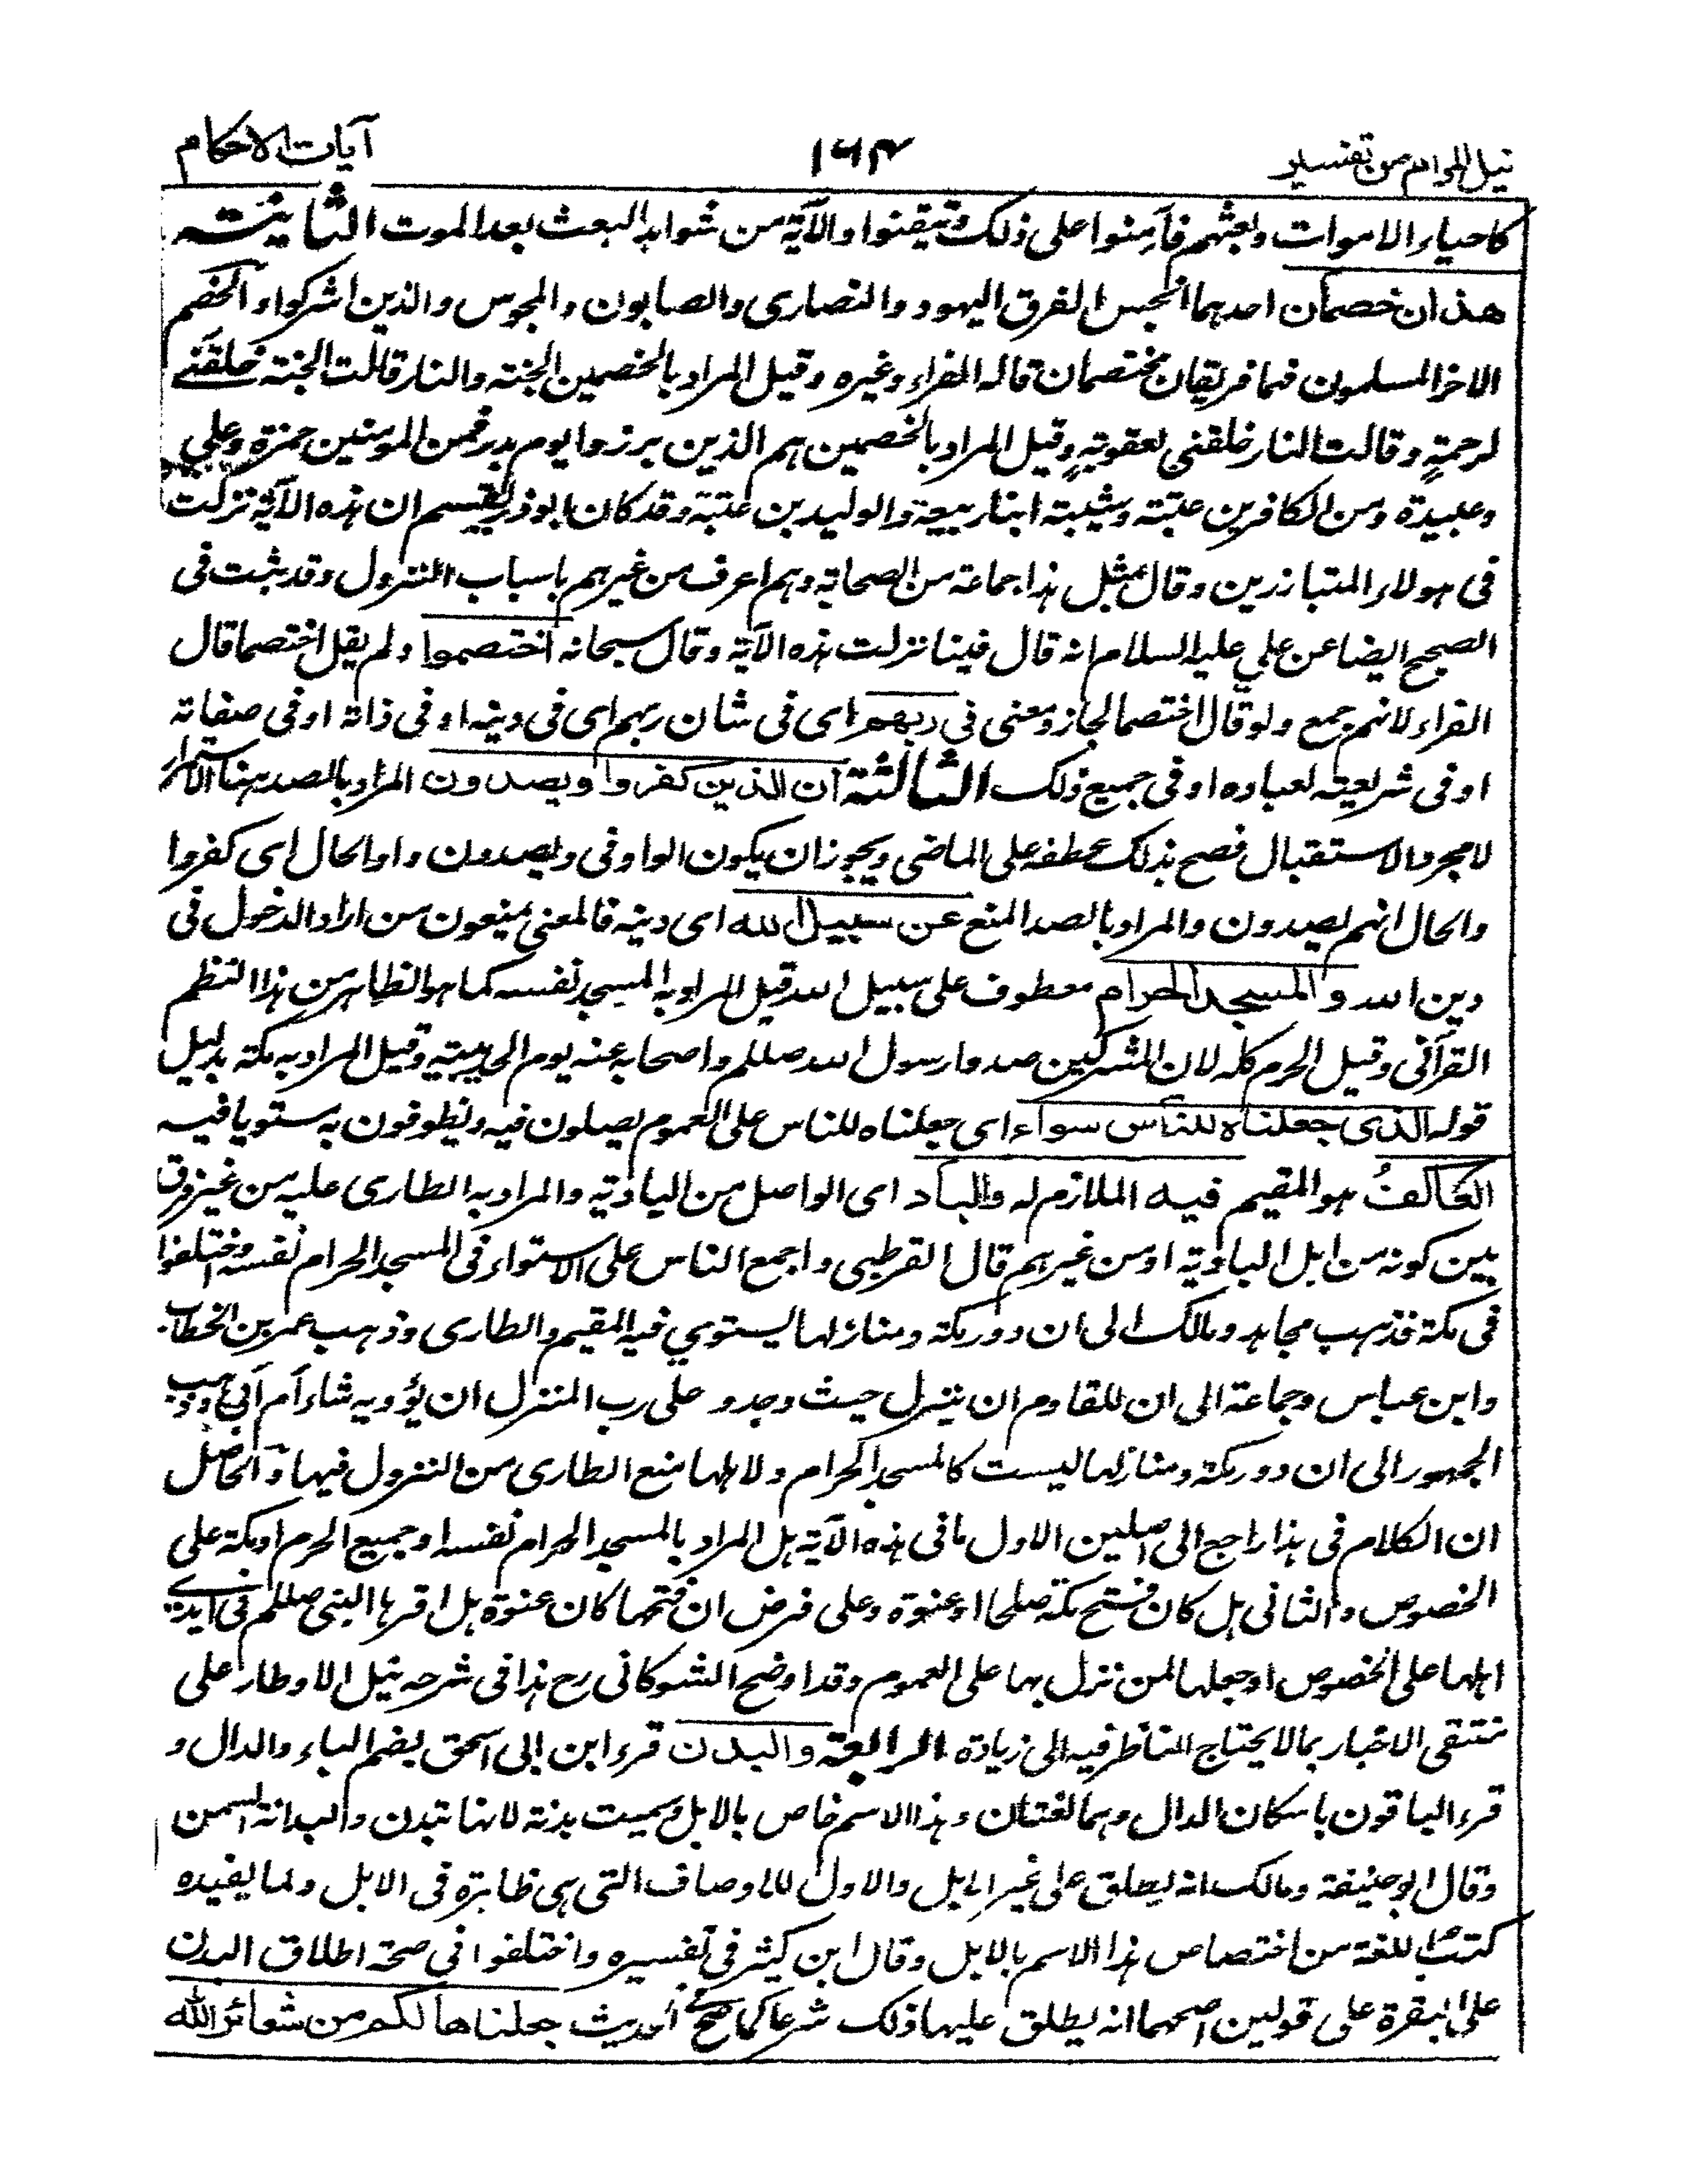 نيل المرام من تفسير
١٦٤
آيات الاحكام
كاحياء الاموات وبعثهم فآمنوا على ذلك وتيقنوا والآية من شواهد البعث بعد الموت الثانية
هذان خصمان احدهما انجس الفرق اليهود والنصارى والصابون والمجوس والذين اشركوا والخصم
الاخر المسلمون فهما فريقان مختصمان قاله الفراء وغيره وقيل المراد بالخصمين الجنة والنار قالت الجنة خلقني
لرحمةٍ وقالت النار خلقني لعقوبةٍ وقيل المراد بالخصمين هم الذين برزوا يوم بدر فمن المومنين حمزة وعلي
وعبيدة ومن الكافرين عتبة وشيبة ابنا ربيعة والوليد بن عتبة وقد كان ابو ذر يقسم ان هذه الآية نزلت
فى هولاء المتبارزين وقال مثل هذا جماعة من الصحابة وهم اعرف من غيرهم باسباب النزول وقد ثبت فى
الصحيح ايضا عن علي عليه السلام انه قال فينا نزلت هذه الآية وقال سبحانه اختصموا ولم يقل اختصما قال
الفراء لانهم جمع ولو قال اختصما لجاز ومعنى فى ربهم اى فى شان ربهم اى فى دينه او فى ذاته او فى صفاته
او فى شريعته لعباده او فى جميع ذلك الثالثة ان الذين كفروا ويصدون المراد بالصد ههنا الاستمرار
لا مجرد الاستقبال فصح بذلك عطفه على الماضى ويجوز ان يكون الواو فى ويصدون واو الحال اى كفروا
والحال انهم يصدون والمراد بالصد المنع عن سبيل الله اى دينه فالمعنى يمنعون من اراد الدخول فى
دين الله والمسجد الحرام معطوف على سبيل الله قيل المراد به المسجد نفسه كما هو الظاهر من هذا النظم
القرآنى وقيل الحرم كله لان المشركين صدوا رسول الله صللم واصحابه عنه يوم الحديبية وقيل المراد به مكة بدليل
قوله الذى جعلناه للناس سواء اى جعلناه للناس على العموم يصلون فيه ويطوفون به مستويا فيه
العاكفُ هو المقيم فيه الملازم له والباد اى الواصل من البادية والمراد به الطارى عليه من غير فرق
بين كونه من اهل البادية او من غيرهم قال القرطبى واجمع الناس على الاستواء فى المسجد الحرام نفسه واختلفوا
فى مكة فذهب مجاهد ومالك الى ان دور مكة ومنازلها يستوي فيه المقيم والطارى وذهب عمر بن الخطاب
وابن عباس وجماعة الى ان للقادم ان ينزل حيث وجد و على رب المنزل ان يؤويه شاء أم أبى وذهب
الجمهور الى ان دور مكة ومنازلها ليست كالمسجد الحرام ولاهلها منع الطارى من النزول فيها والحاصل
ان الكلام فى هذا راجع الى اصلين الاول ما فى هذه الآية هل المراد بالمسجد الحرام نفسه او جميع الحرم او مكة على
الخصوص والثانى هل كان فتح مكة صلحا او عنوة وعلى فرض ان فتحها كان عنوة هل اقرها النبى صللم فى ايدي
اهلها على الخصوص او جعلها لمن نزل بها على العموم وقد اوضح الشوكانى رح هذا فى شرحه نيل الاوطار على
منتقى الاخبار بما لا يحتاج الناظر فيه الى زيادة الرابعة والبدن قرء ابن ابى اسحق بضم الباء والدال و
قرء الباقون باسكان الدال وهما لغتان وهذا الاسم خاص بالابل وسميت بدنة لانها تبدن والبدانة السمن
وقال ابو حنيفة ومالك انه يطلق على غير الابل والاول لما للاوصاف التى هى ظاهرة فى الابل ولما يفيده
كتب اللغة من اختصاص هذا الاسم بالابل وقال ابن كثير فى تفسيره واختلفوا فى صحة اطلاق البدن
على البقرة على قولين اصحهما انه يطلق عليها ذلك شرعا كما صح الحديث جعلناها لكم من شعائر الله